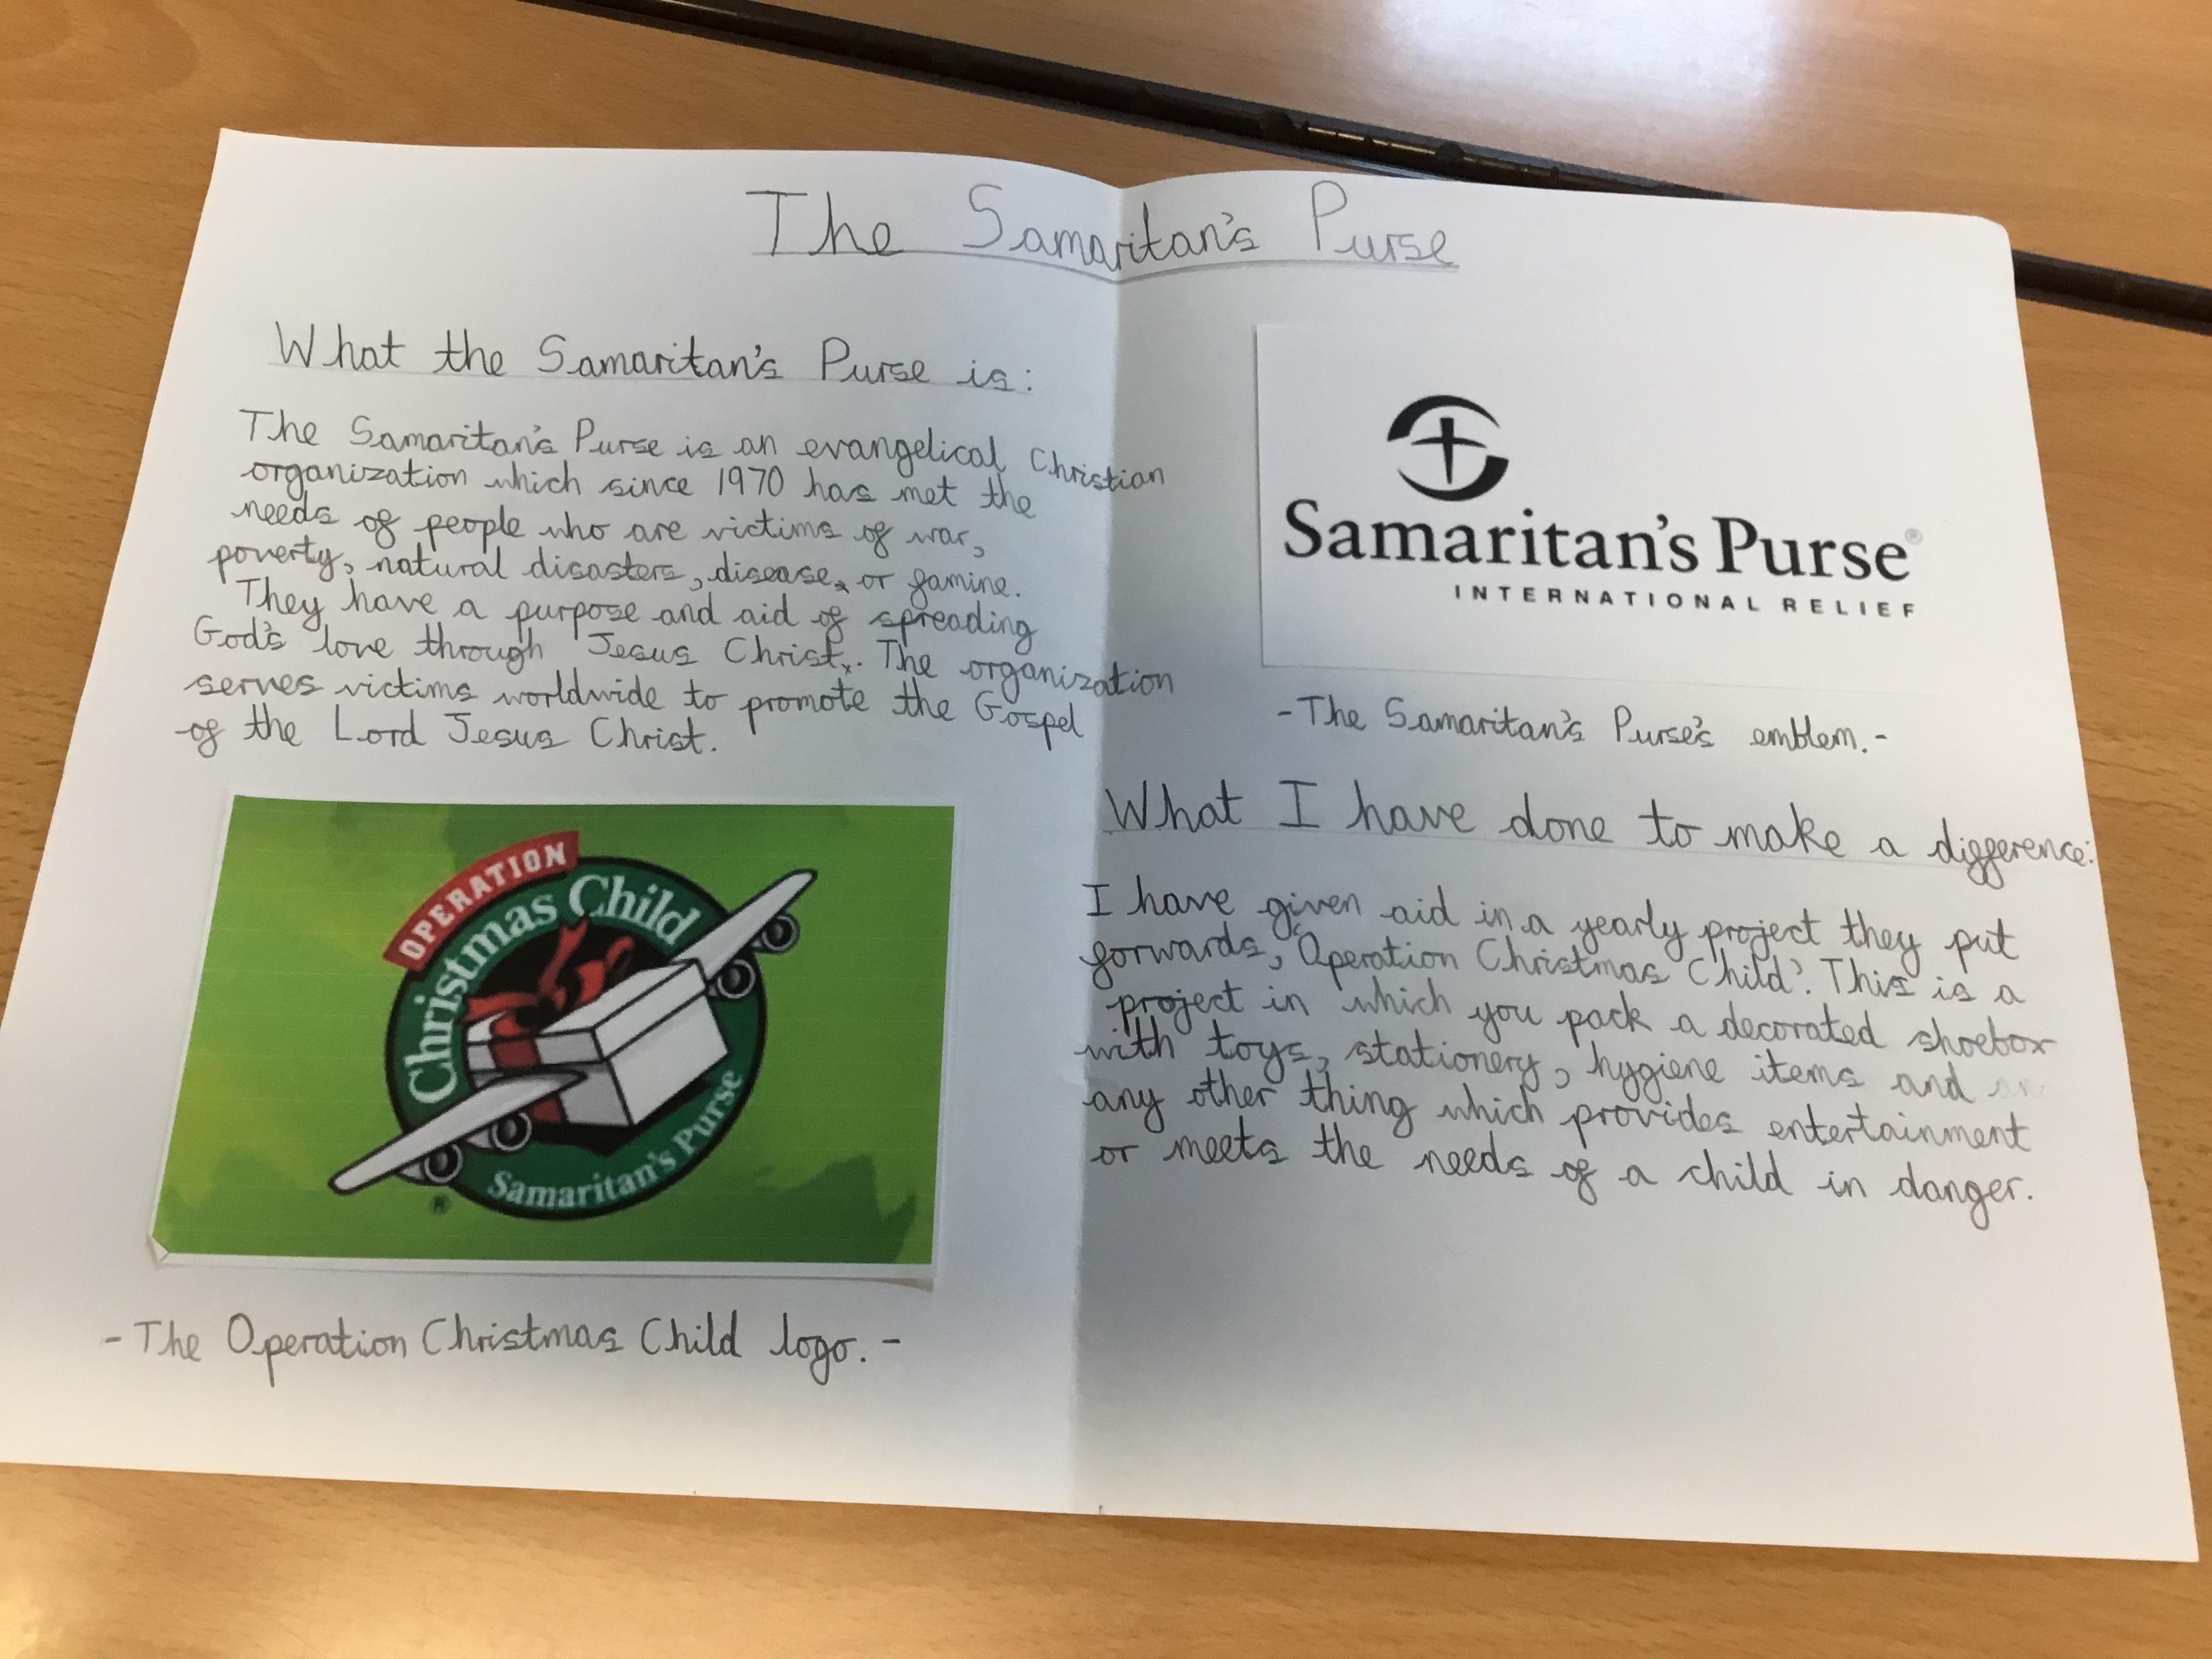 The Samaritan's Purse
What the Samaritan's Purse is:
The Samaritan's Purse is an evangelical Christian
organization which since 1970 has met the
needs of people who are victims of war,
poverty, natural disasters, disease, or famine.
They have a purpose and aid of spreading
God's love through Jesus Christ. The organization
serves victims worldwide to promote the Gospel
of the Lord Jesus Christ.
OPERATION
Christmas Child
Samaritan's Purse
®
-The Operation Christmas Child logo.-
Samaritan's Purse®
INTERNATIONAL RELIEF
-The Samaritan's Purse's emblem.-
What I have done to make a difference:
I have given aid in a yearly project they put
forwards, 'Operation Christmas Child'. This is a
project in which you pack a decorated shoebox
with toys, stationery, hygiene items and
any other thing which provides entertainment
or meets the needs of a child in danger.